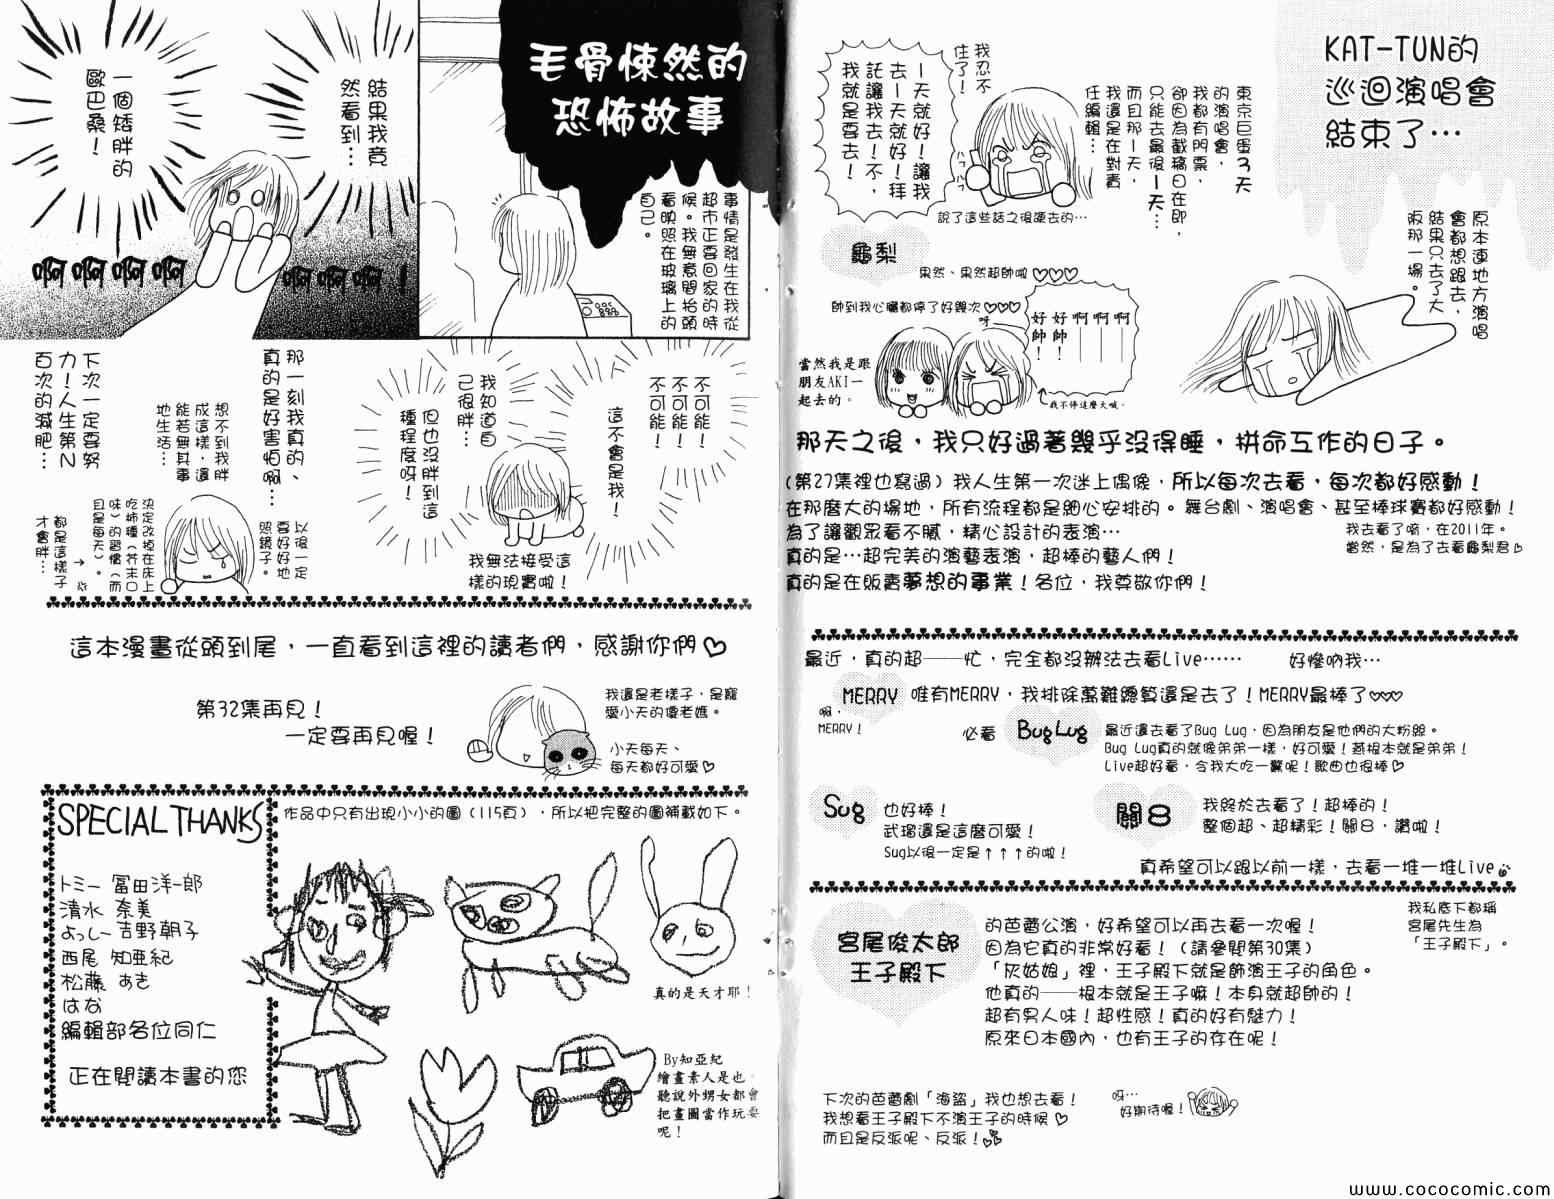 KAT-TUN的
巡迴演唱會
結束了…
原本連地方演唱
會都想跟去，
結果只去了大
阪那一場。
東京巨蛋3天
的演唱會，
我都有門票，
卻因為截稿日在即，
只能去最後一天…
而且那一天，
我還是在對責
任編輯…
我忍不
住了！
一天就好！讓我
去一天就好！拜
託讓我去！不，
我就是要去！
說了這些話之後硬去的…
龜梨
果然、果然超帥啦♡♡♡
帥到我心臟都停了好幾次♡♡♡
呀
啊啊啊
好帥！
好帥！
我不停這麼大喊。
當然我是跟
朋友AKI一
起去的。
那天之後，我只好過著幾乎沒得睡，拼命工作的日子。
（第27集裡也寫過）我人生第一次迷上偶像，所以每次去看，每次都好感動！
在那麼大的場地，所有流程都是細心安排的。舞台劇、演唱會、甚至棒球賽都好感動！
為了讓觀眾看不膩，精心設計的表演…
我去看了唷，在2011年。
當然，是為了去看龜梨君♡
真的是…超完美的演藝表演，超棒的藝人們！
真的是在販賣夢想的事業！各位，我尊敬你們！
最近，真的超──忙，完全都沒辦法去看Live……
好慘吶我…
MERRY
唯有MERRY，我排除萬難總算還是去了！MERRY最棒了♡♡♡
啊，
MERRY！
必看
Bug Lug
最近還去看了Bug Lug，因為朋友是他們的大粉絲。
Bug Lug真的就像弟弟一樣，好可愛！燕根本就是弟弟！
Live超好看，令我大吃一驚呢！歌曲也很棒♡
Sug
也好棒！
武瑠還是這麼可愛！
Sug以後一定是↑↑↑的啦！
關8
我終於去看了！超棒的！
整個超、超精彩！關8，讚啦！
真希望可以跟以前一樣，去看一堆一堆Live
宮尾俊太郎
王子殿下
的芭蕾公演，好希望可以再去看一次喔！
因為它真的非常好看！（請參閱第30集）
「灰姑娘」裡，王子殿下就是飾演王子的角色。
他真的──根本就是王子嘛！本身就超帥的！
超有男人味！超性感！真的好有魅力！
原來日本國內，也有王子的存在呢！
我私底下都稱
宮尾先生為
「王子殿下」。
下次的芭蕾劇「海盜」我也想去看！
我想看王子殿下不演王子的時候♡
而且是反派呢、反派！
呀…
好期待喔！
毛骨悚然的
恐怖故事
事情是發生在我從
超市正要回家的時
候。我無意間抬頭
看映照在玻璃上的
自己。
結果我竟
然看到…
一個矮胖的
歐巴桑！
啊啊啊啊
啊啊啊！
不可能！
不可能！
不可能！
這不會是我！
我知道自
己很胖…
但也沒胖到這
種程度呀！
我無法接受這
樣的現實啦！
那一刻我真的、
真的是好害怕啊…
想不到我胖
成這樣，還
能若無其事
地生活…
下次一定要努
力！人生第N
百次的減肥…
以後一定
要好好地
照鏡子。
決定改掉在床上
吃柿種（芥末口
味）的習慣（而
且是每天）。
都是這樣子
才會胖…
這本漫畫從頭到尾，一直看到這裡的讀者們，感謝你們♡
第32集再見！
一定要再見喔！
我還是老樣子，是寵
愛小天的傻老媽。
小天每天、
每天都好可愛♡
SPECIAL THANKS
トミー 冨田洋一郎
清水 奈美
よっしー 吉野朝子
西尾 知亜紀
松藤 あき
はな
編輯部各位同仁
正在閱讀本書的您
作品中只有出現小小的圖（115頁），所以把完整的圖補載如下。
真的是天才耶！
By知亞紀
繪畫素人是也，
聽說外甥女都會
把畫圖當作玩耍
呢！
www.cococomic.com